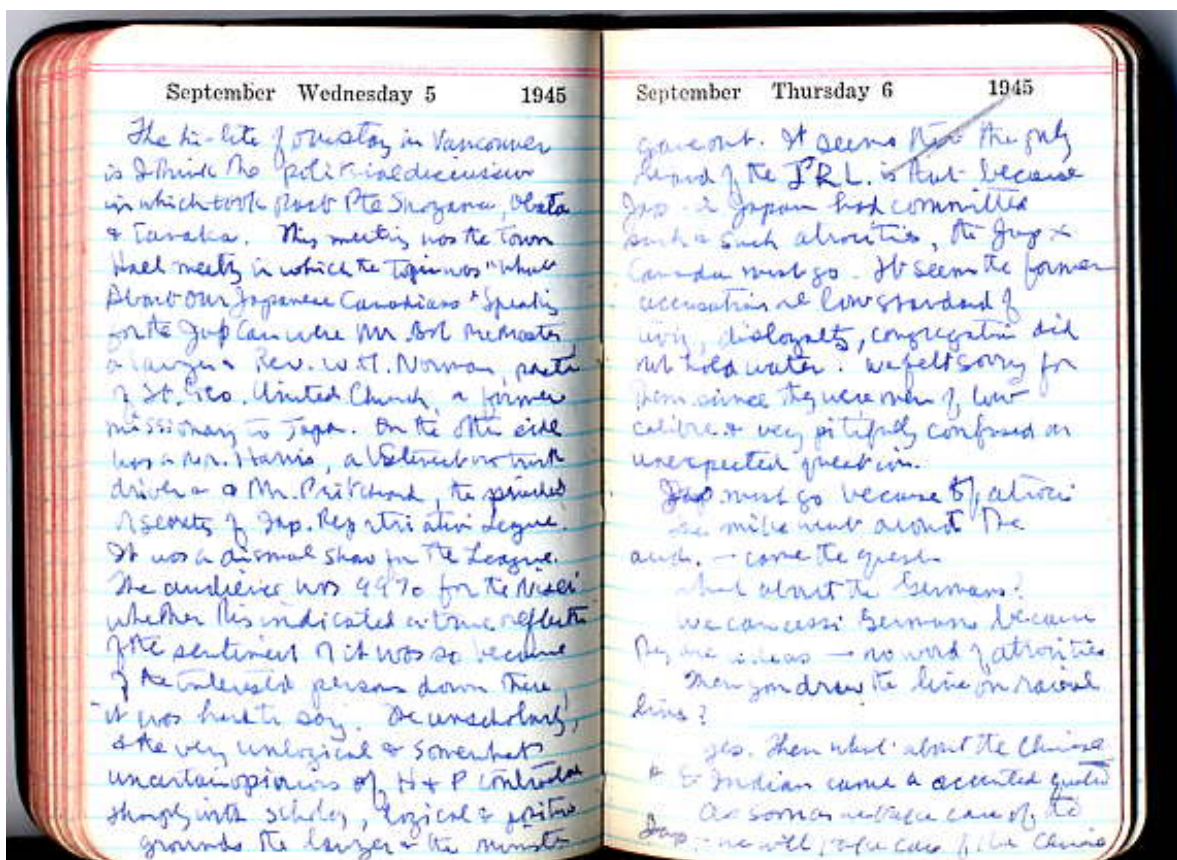 September Wednesday 5 1945
The hi-lite of our stay in Vancouver
is I think the political discussion
in which took part Pte Shoyama, Obata
& Tanaka. This meeting was the Town
Hall meeting in which the topic was "What
About Our Japanese Canadians" Speaking
for the Jap Can were Mr. Bob McMaster,
a lawyer & Rev. W. H. Norman,
of St. Geo. United Church, a former
missionary to Japan. On the other side
was a Mr. Harris, a truck
driver & a Mr. Pritchard, the
secretary of Jap. Repatriation League.
It was a dismal show for the League.
The audience was 99% for the Nisei
whether this indicated a true reflection
of the sentiment or it was so because
of the interested persons down there,
it was hard to say. The unscholarly,
& the very unlogical & somewhat
uncertain opinions of H & P contrasted
sharply with scholarly, logical & positive
grounds the lawyer & the minister
September Thursday 6 1945
gave out. It seems that the only
of the J.R.L. is that because
Jap in Japan had committed
such & such atrocities, the Jap in
Canada must go. It seems the former
accusations re low standard of
living, disloyalty, congregation did
not hold water. We felt sorry for
them since they were men of low
calibre & very pitifully confused on
unexpected question.
Jap must go because of atroci
the mike went around the
aud. — came the quest.
What about the Germans?
We can Germans because
They are ideas — no word of atrocities
Then you draw the line on racial
lines?
Yes. Then what about the Chinese
& E Indian came a accented
As soon as we take care of the
Jap — we will take care of the Chinese